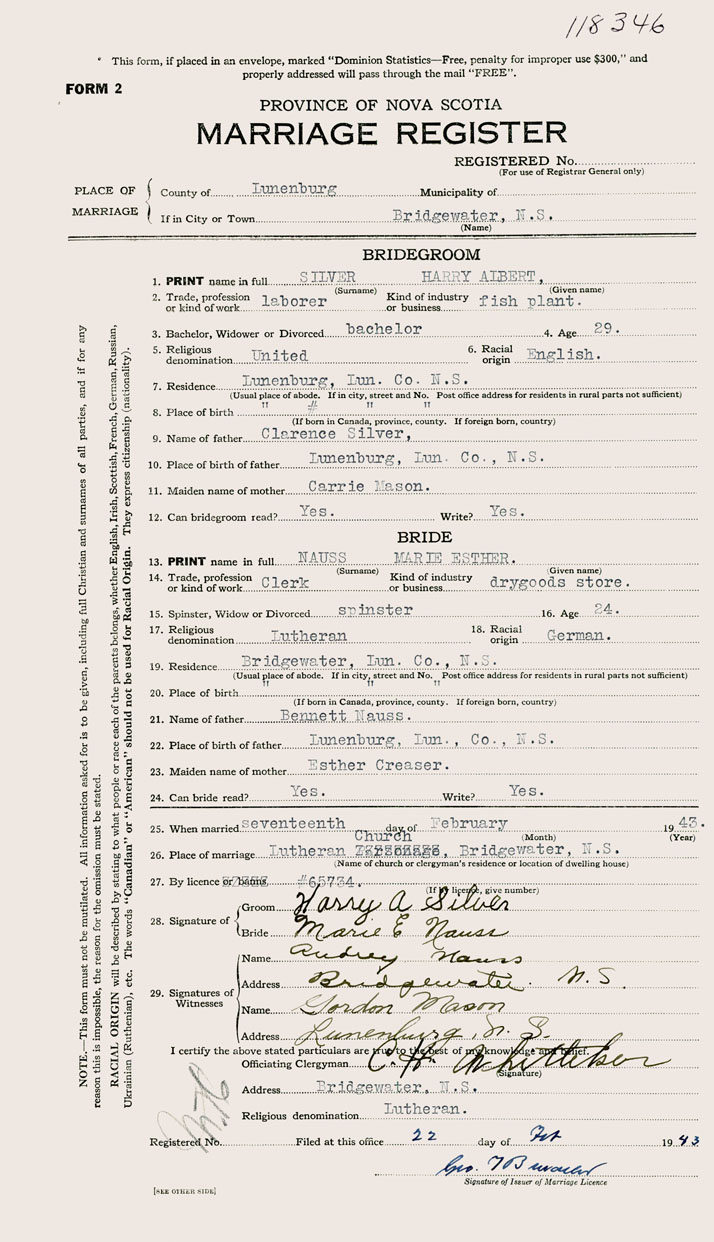 118346
* This form, if placed in an envelope, marked "Dominion Statistics—Free, penalty for improper use $300," and
properly addressed will pass through the mail "FREE".
FORM 2
PROVINCE OF NOVA SCOTIA
MARRIAGE REGISTER
REGISTERED No.
(For use of Registrar General only)
PLACE OF MARRIAGE
County of Lunenburg Municipality of
If in City or Town Bridgewater, N.S.
(Name)
BRIDEGROOM
1. PRINT name in full SILVER HARRY ALBERT,
(Surname) (Given name)
2. Trade, profession or kind of work laborer Kind of industry or business fish plant.
3. Bachelor, Widower or Divorced bachelor 4. Age 29.
5. Religious denomination United 6. Racial origin English.
7. Residence Lunenburg, Lun. Co. N.S.
(Usual place of abode. If in city, street and No. Post office address for residents in rural parts not sufficient)
8. Place of birth " # " "
(If born in Canada, province, county. If foreign born, country)
9. Name of father Clarence Silver,
10. Place of birth of father Lunenburg, Lun. Co., N.S.
11. Maiden name of mother Carrie Mason.
12. Can bridegroom read? Yes. Write? Yes.
BRIDE
13. PRINT name in full NAUSS MARIE ESTHER.
(Surname) (Given name)
14. Trade, profession or kind of work Clerk Kind of industry or business drygoods store.
15. Spinster, Widow or Divorced spinster 16. Age 24.
17. Religious denomination Lutheran 18. Racial origin German.
19. Residence Bridgewater, Lun. Co., N.S.
(Usual place of abode. If in city, street and No. Post office address for residents in rural parts not sufficient)
20. Place of birth " " "
(If born in Canada, province, county. If foreign born, country)
21. Name of father Bennett Nauss.
22. Place of birth of father Lunenburg, Lun., Co., N.S.
23. Maiden name of mother Esther Creaser.
24. Can bride read? Yes. Write? Yes.
25. When married seventeenth day of February 1943.
(Month) (Year)
26. Place of marriage Lutheran Church, Bridgewater, N.S.
(Name of church or clergyman's residence or location of dwelling house)
27. By licence or banns #65734.
(If by licence, give number)
28. Signature of
Groom Harry A Silver
Bride Marie E Nauss
29. Signatures of Witnesses
Name Audrey Nauss
Address Bridgewater N.S
Name Gordon Mason
Address Lunenburg, N. S.
I certify the above stated particulars are true to the best of my knowledge and belief.
Officiating Clergyman C. H.
(Signature)
Address Bridgewater, N.S.
Religious denomination Lutheran.
Registered No. Filed at this office 22 day of Feb 1943
Geo.
Signature of Issuer of Marriage Licence
[SEE OTHER SIDE]
NOTE.—This form must not be mutilated. All information asked for is to be given, including full Christian and surnames of all parties, and if for any
reason this is impossible, the reason for the omission must be stated.
RACIAL ORIGIN will be described by stating to what people or race each of the parents belongs, whether English, Irish, Scottish, French, German, Russian,
Ukrainian (Ruthenian), etc. The words "Canadian" or "American" should not be used for Racial Origin. They express citizenship (nationality).